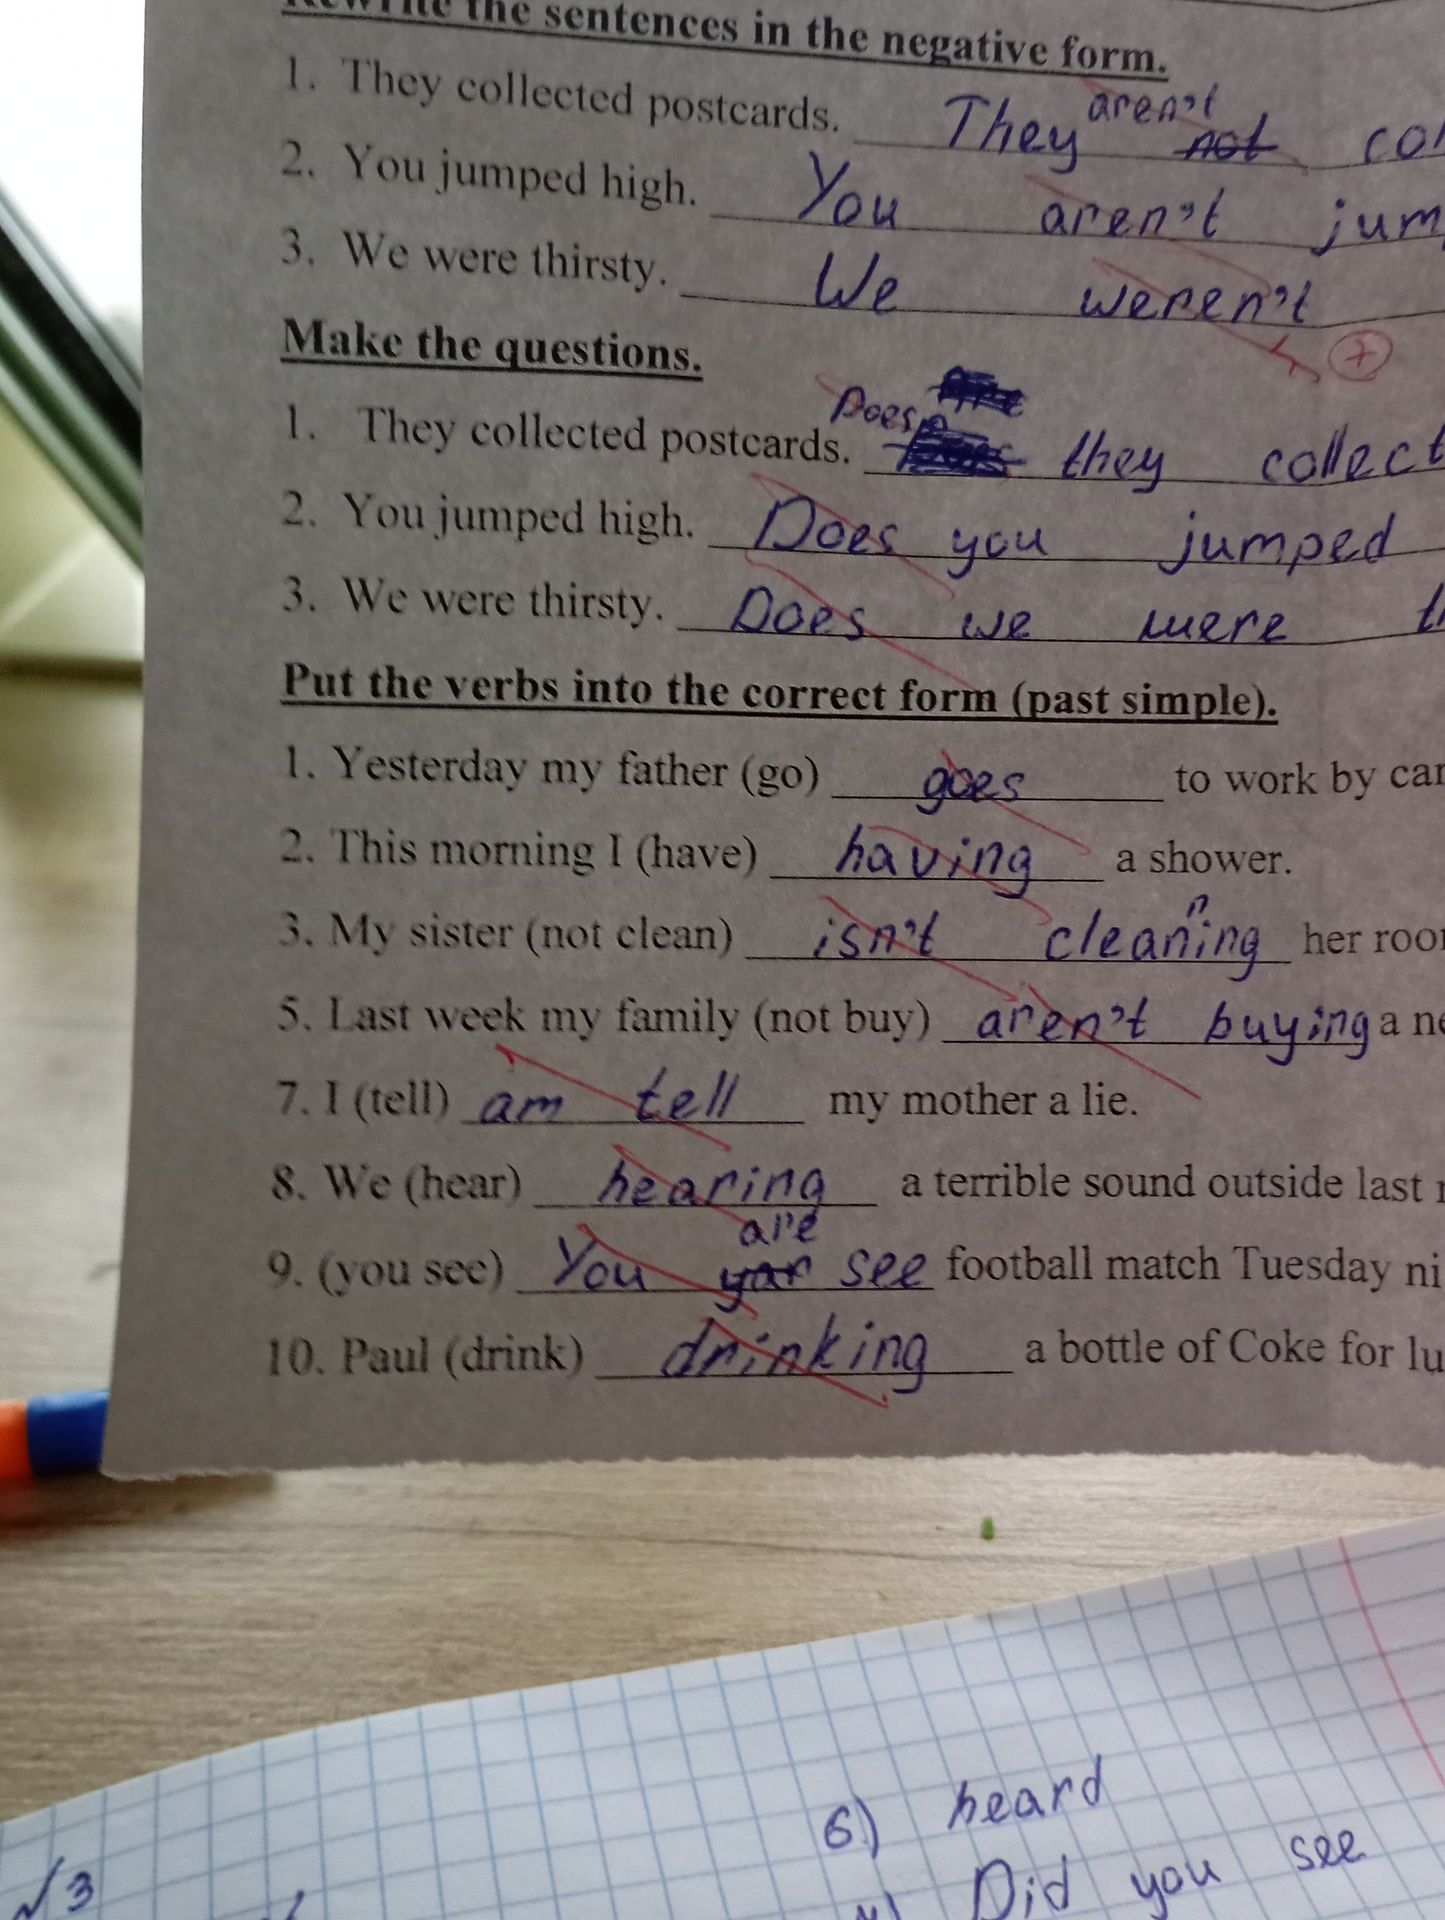 the sentences in the negative form.
aren't
1. They collected postcards. They not
2. You jumped high. You aren't
3. We were thirsty. We weren't
+
Make the questions.
Does
1. They collected postcards. they collect
2. You jumped high. Does you jumped
3. We were thirsty. Does we were
Put the verbs into the correct form (past simple).
1. Yesterday my father (go) goes to work by car
2. This morning I (have) having a shower.
n
3. My sister (not clean) isn't cleaning her
5. Last week my family (not buy) aren't buying a
7. I (tell) am tell my mother a lie.
8. We (hear) hearing a terrible sound outside last
are
9. (you see) You see football match Tuesday
10. Paul (drink) drinking a bottle of Coke for
6) heard
√3
Did you see